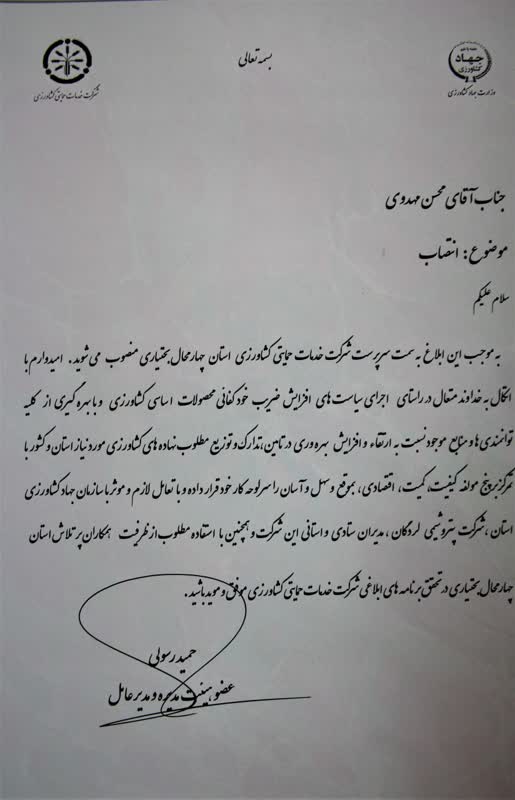 بسمه تعالی
جهاد
کشاورزی
وزارت جهاد کشاورزی
شرکت خدمات حمایتی کشاورزی
جناب آقای محسن مهدوی
موضوع: انتصاب
سلام علیکم
به موجب این ابلاغ به سمت سرپرست شرکت خدمات حمایتی کشاورزی استان چهارمحال بختیاری منصوب می شوید. امیدوارم با
اتکال به خداوند متعال در راستای اجرای سیاست های افزایش ضریب خودکفائی محصولات اساسی کشاورزی و با بهره گیری از کلیه
توانمندی ها و منابع موجود نسبت به ارتقاء و افزایش بهره وری در تامین، تدارک و توزیع مطلوب نهاده های کشاورزی مورد نیاز استان و کشور با
تمرکز بر پنج مولفه کیفیت، کمیت، اقتصادی، بموقع و سهل و آسان را سرلوحه کار خود قرار داده و با تعامل لازم و موثر با سازمان جهاد کشاورزی
استان، شرکت پتروشیمی لردگان، مدیران ستادی و استانی این شرکت و همچنین با استفاده مطلوب از ظرفیت همکاران پر تلاش استان
چهارمحال بختیاری در تحقق برنامه های ابلاغی شرکت خدمات حمایتی کشاورزی موفق و موید باشید.
حمید رسولی
عضو هیئت مدیره و مدیر عامل